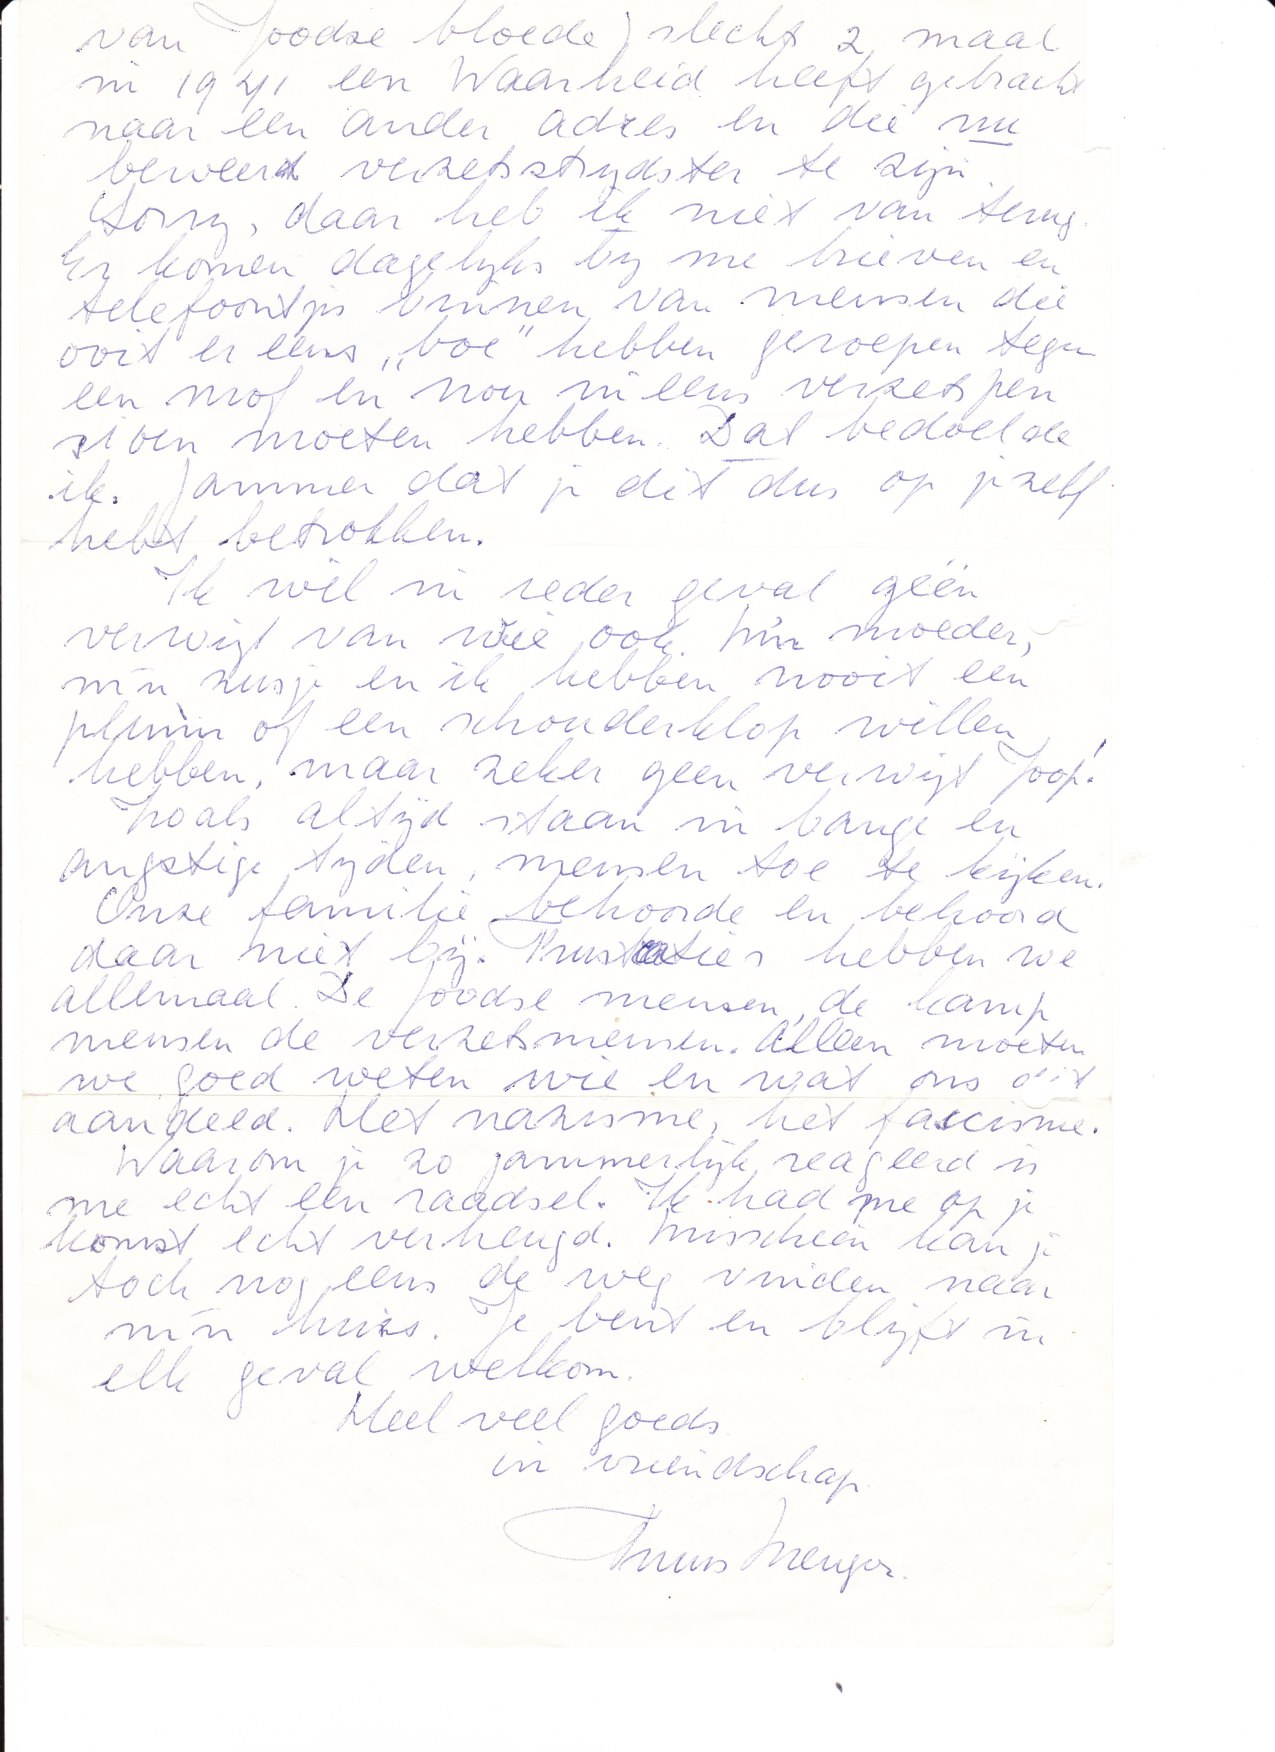 van Joodse bloede) slecht 2 maal
in 1941 een Waarheid heeft gebracht
naar een ander adres en die nu
beweerd verzetsstrydster te zijn.
Sorry, daar heb ik niet van terug.
Er komen dagelyks by me brieven en
telefoontjs binnen van mensen die
ooit er eens „boe" hebben geroepen tegen
een mof en nou in eens verzetspen
sioen moeten hebben. Dat bedoelde
ik. Jammer dat je dit dus op jezelf
hebt betrokken.
Ik wil in ieder geval géén
verwyt van wie ook. M'n moeder,
m'n zusje en ik hebben nooit een
pluim of een schouderklop willen
hebben, maar zeker geen verwyt Joop!
Zoals altijd staan in bange en
angstige tyden, mensen toe te kijken.
Onze familie behoorde en behoord
daar niet bij. Frustraties hebben we
allemaal. De Joodse mensen, de kamp
mensen de verzetsmensen. Alleen moeten
we goed weten wie en wat ons dit
aandeed. Het nazisme, het fascisme.
Waarom je zo jammerlijk reageerd is
me echt een raadsel. Ik had me op je
komst echt verheugd. Misschien kan je
toch nog eens de weg vinden naar
m'n huis. Je bent en blijft in
elk geval welkom.
Heel veel goeds
in vriendschap
Truus Menger.